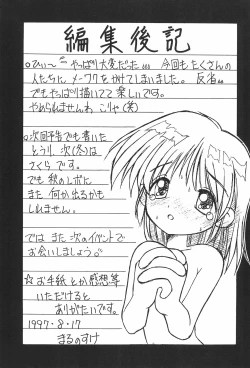 編集後記
○ひぃ〜 やっぱり大変だった… 今回もたくさんの
人たちに メーワクをかけてしまいました。反省…
でもやっぱり描いてて楽しいです。
やめられませんわ こりゃ(笑)
○次回予告でも書いた
とうり、次(冬)は
さくらです。
でも秋のレボに
また何か出るかも
しれません。
では また 次のイベントで
お会いしましょう
☆お手紙とか感想等
いただけると
ありがたいです。
1997・8・17
まるのすけ